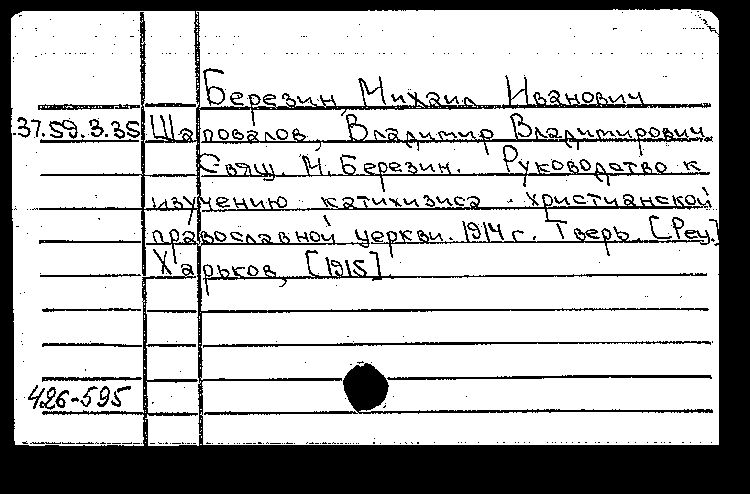 Березин, Михаил Иванович
37.59.3.35 Шаповалов, Владимир Владимирович.
Свящ. М. Березин. Руководство к
изучению катихизиса христианской
православной церкви. 1914 г. Тверь. [Рец.]
Харьков, [1915].
426-595